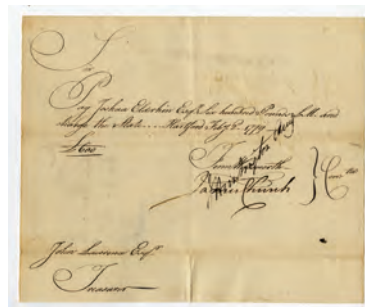 Sir
Pay Joshua Elderkin Esqr. Six hundred Pounds L.M. and
charge the State.... Hartford Feby 2. 1779
£600
James Church } Comtee
John Lawrence Esqr.
Treasurer